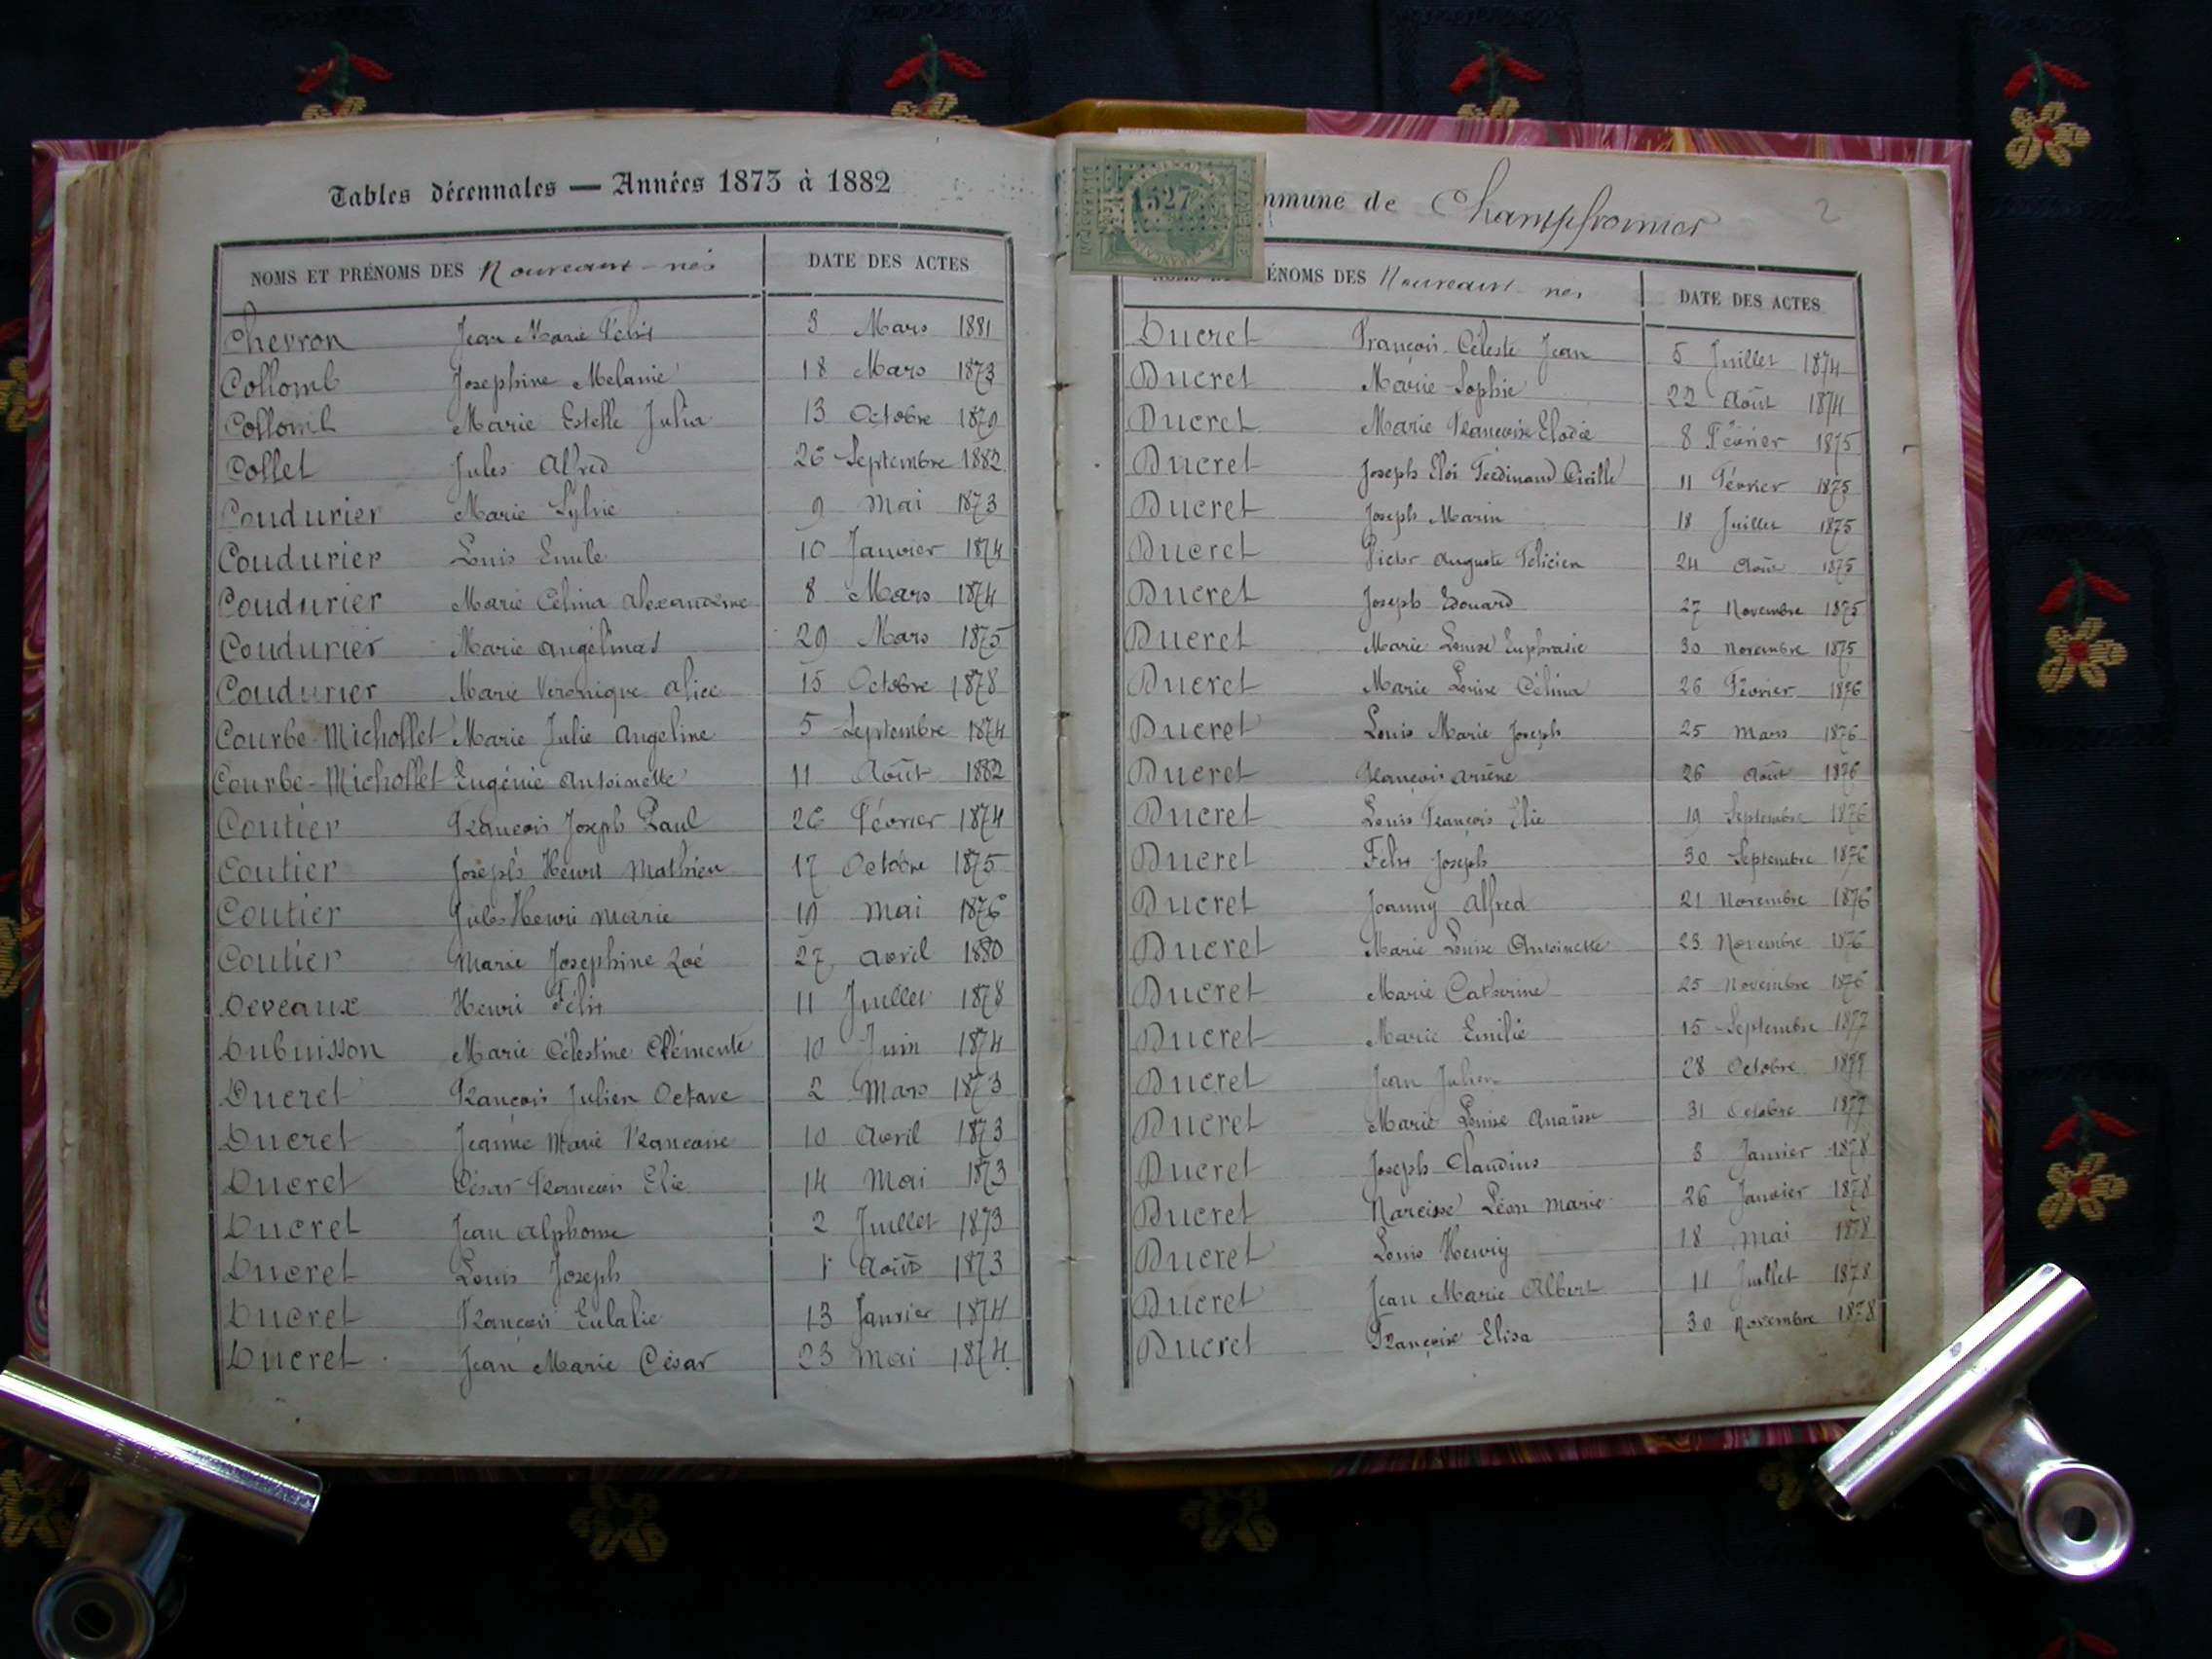 Tables décennales — Années 1873 à 1882
NOMS ET PRÉNOMS DES Nouveaux-nés DATE DES ACTES
Chevron Jean Marie Félix 3 Mars 1881
Collomb Josephine Melanie 18 Mars 1873
Collomb Marie Estelle Julia 13 Octobre 1879
Collet Jules Alfred 26 Septembre 1882
Coudurier Marie Sylvie 9 Mai 1873
Coudurier Louis Emile 10 Janvier 1874
Coudurier Marie Célina Alexandrine 8 Mars 1874
Coudurier Marie Angélina 29 Mars 1875
Coudurier Marie Véronique Alice 15 Octobre 1878
Courbe-Michollet Marie Julie Angeline 5 Septembre 1874
Courbe-Michollet Eugénie Antoinette 11 Août 1882
Coutier François Joseph Paul 26 Février 1874
Coutier Joseph Henri Mathieu 17 Octobre 1875
Coutier Jules Henri Marie 19 Mai 1876
Coutier Marie Josephine Zoé 27 Avril 1880
Deveaux Henri Félix 11 Juillet 1878
Dubuisson Marie Célestine Clémente 10 Juin 1874
Ducret François Julien Octave 2 Mars 1873
Ducret Jeanne Marie Françoise 10 Avril 1873
Ducret César François Elie 14 Mai 1873
Ducret Jean Alphonse 2 Juillet 1873
Ducret Louis Joseph 1r Août 1873
Ducret François Eulalie 13 Janvier 1874
Ducret Jean Marie César 23 Mai 1874
1527
mmune de Champfromier 2
ÉNOMS DES Nouveaux-nés DATE DES ACTES
Ducret François Céleste Jean 5 Juillet 1874
Ducret Marie Sophie 22 Août 1874
Ducret Marie Françoise Elodie 8 Février 1875
Ducret Joseph Eloi Ferdinand 11 Février 1875
Ducret Joseph Marin 18 Juillet 1875
Ducret Victor Auguste Félicien 24 Août 1875
Ducret Joseph Edouard 27 Novembre 1875
Ducret Marie Louise Euphrasie 30 Novembre 1875
Ducret Marie Louise Célina 26 Février 1876
Ducret Louis Marie Joseph 25 Mars 1876
Ducret François Arsène 26 Août 1876
Ducret Louis François Elie 19 Septembre 1876
Ducret Felix Joseph 30 Septembre 1876
Ducret Joanny Alfred 21 Novembre 1876
Ducret Marie Louise Antoinette 23 Novembre 1876
Ducret Marie Catherine 25 Novembre 1876
Ducret Marie Emilie 15 Septembre 1877
Ducret Jean Julien 28 Octobre 1877
Ducret Marie Louise Anaïse 31 Octobre 1877
Ducret Joseph Claudius 3 Janvier 1878
Ducret Narcisse Léon Marie 26 Janvier 1878
Ducret Louis Henry 18 Mai 1878
Ducret Jean Marie Albert 11 Juillet 1878
Ducret Françoise Elisa 30 Novembre 1878